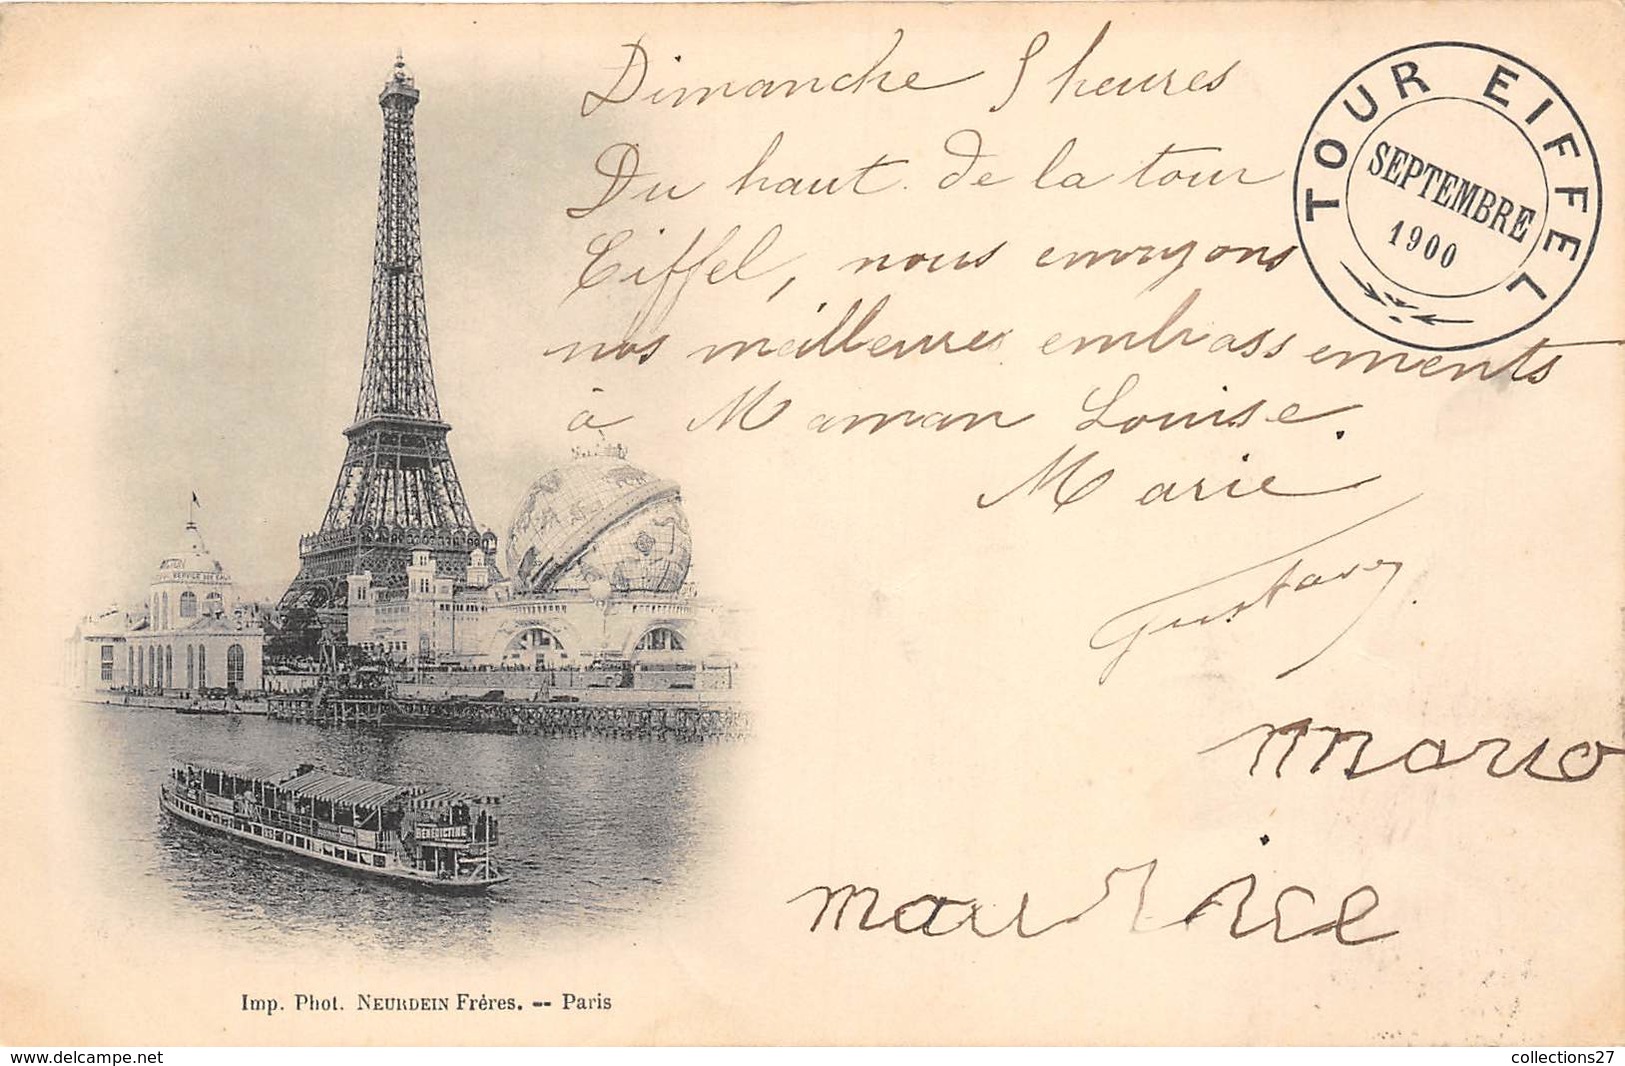 Dimanche 5 heures
Du haut de la tour
Eiffel, nous envoyons
nos meilleures embrassements
à Maman Louise.
Marie
Gustave
mario
maurice
TOUR EIFFEL
SEPTEMBRE
1900
SERVICE DES EAUX
BÉNÉDICTINE
Imp. Phot. NEURDEIN Frères. -- Paris
www.delcampe.net
collections27